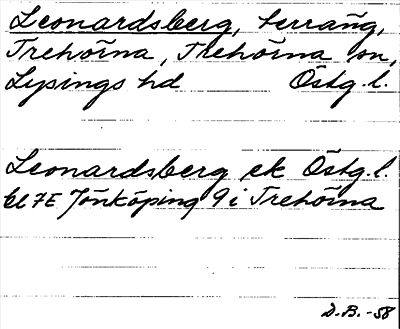 Leonardsberg, terräng,
Trehörna, Trehörna sn,
Lysings hd Östg. l.
Leonardsberg ek Östg. l.
bl 7E Jönköping 9 i Trehörna
D.B. -58